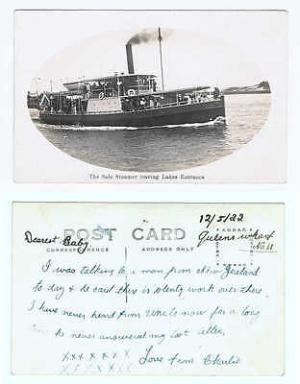 The Sale Steamer leaving Lakes Entrance
POST CARD
CORRESPONDENCE
ADDRESS ONLY
12/5/22
Queens wharf
No 11
Dearest Baby
I was talking to a man from New Zealand
to day & he said there is plenty work over there.
I have never heard from Uncle now for a long
he never answered my last letter.
Love from Charlie
x x x x x x x
x x x x x